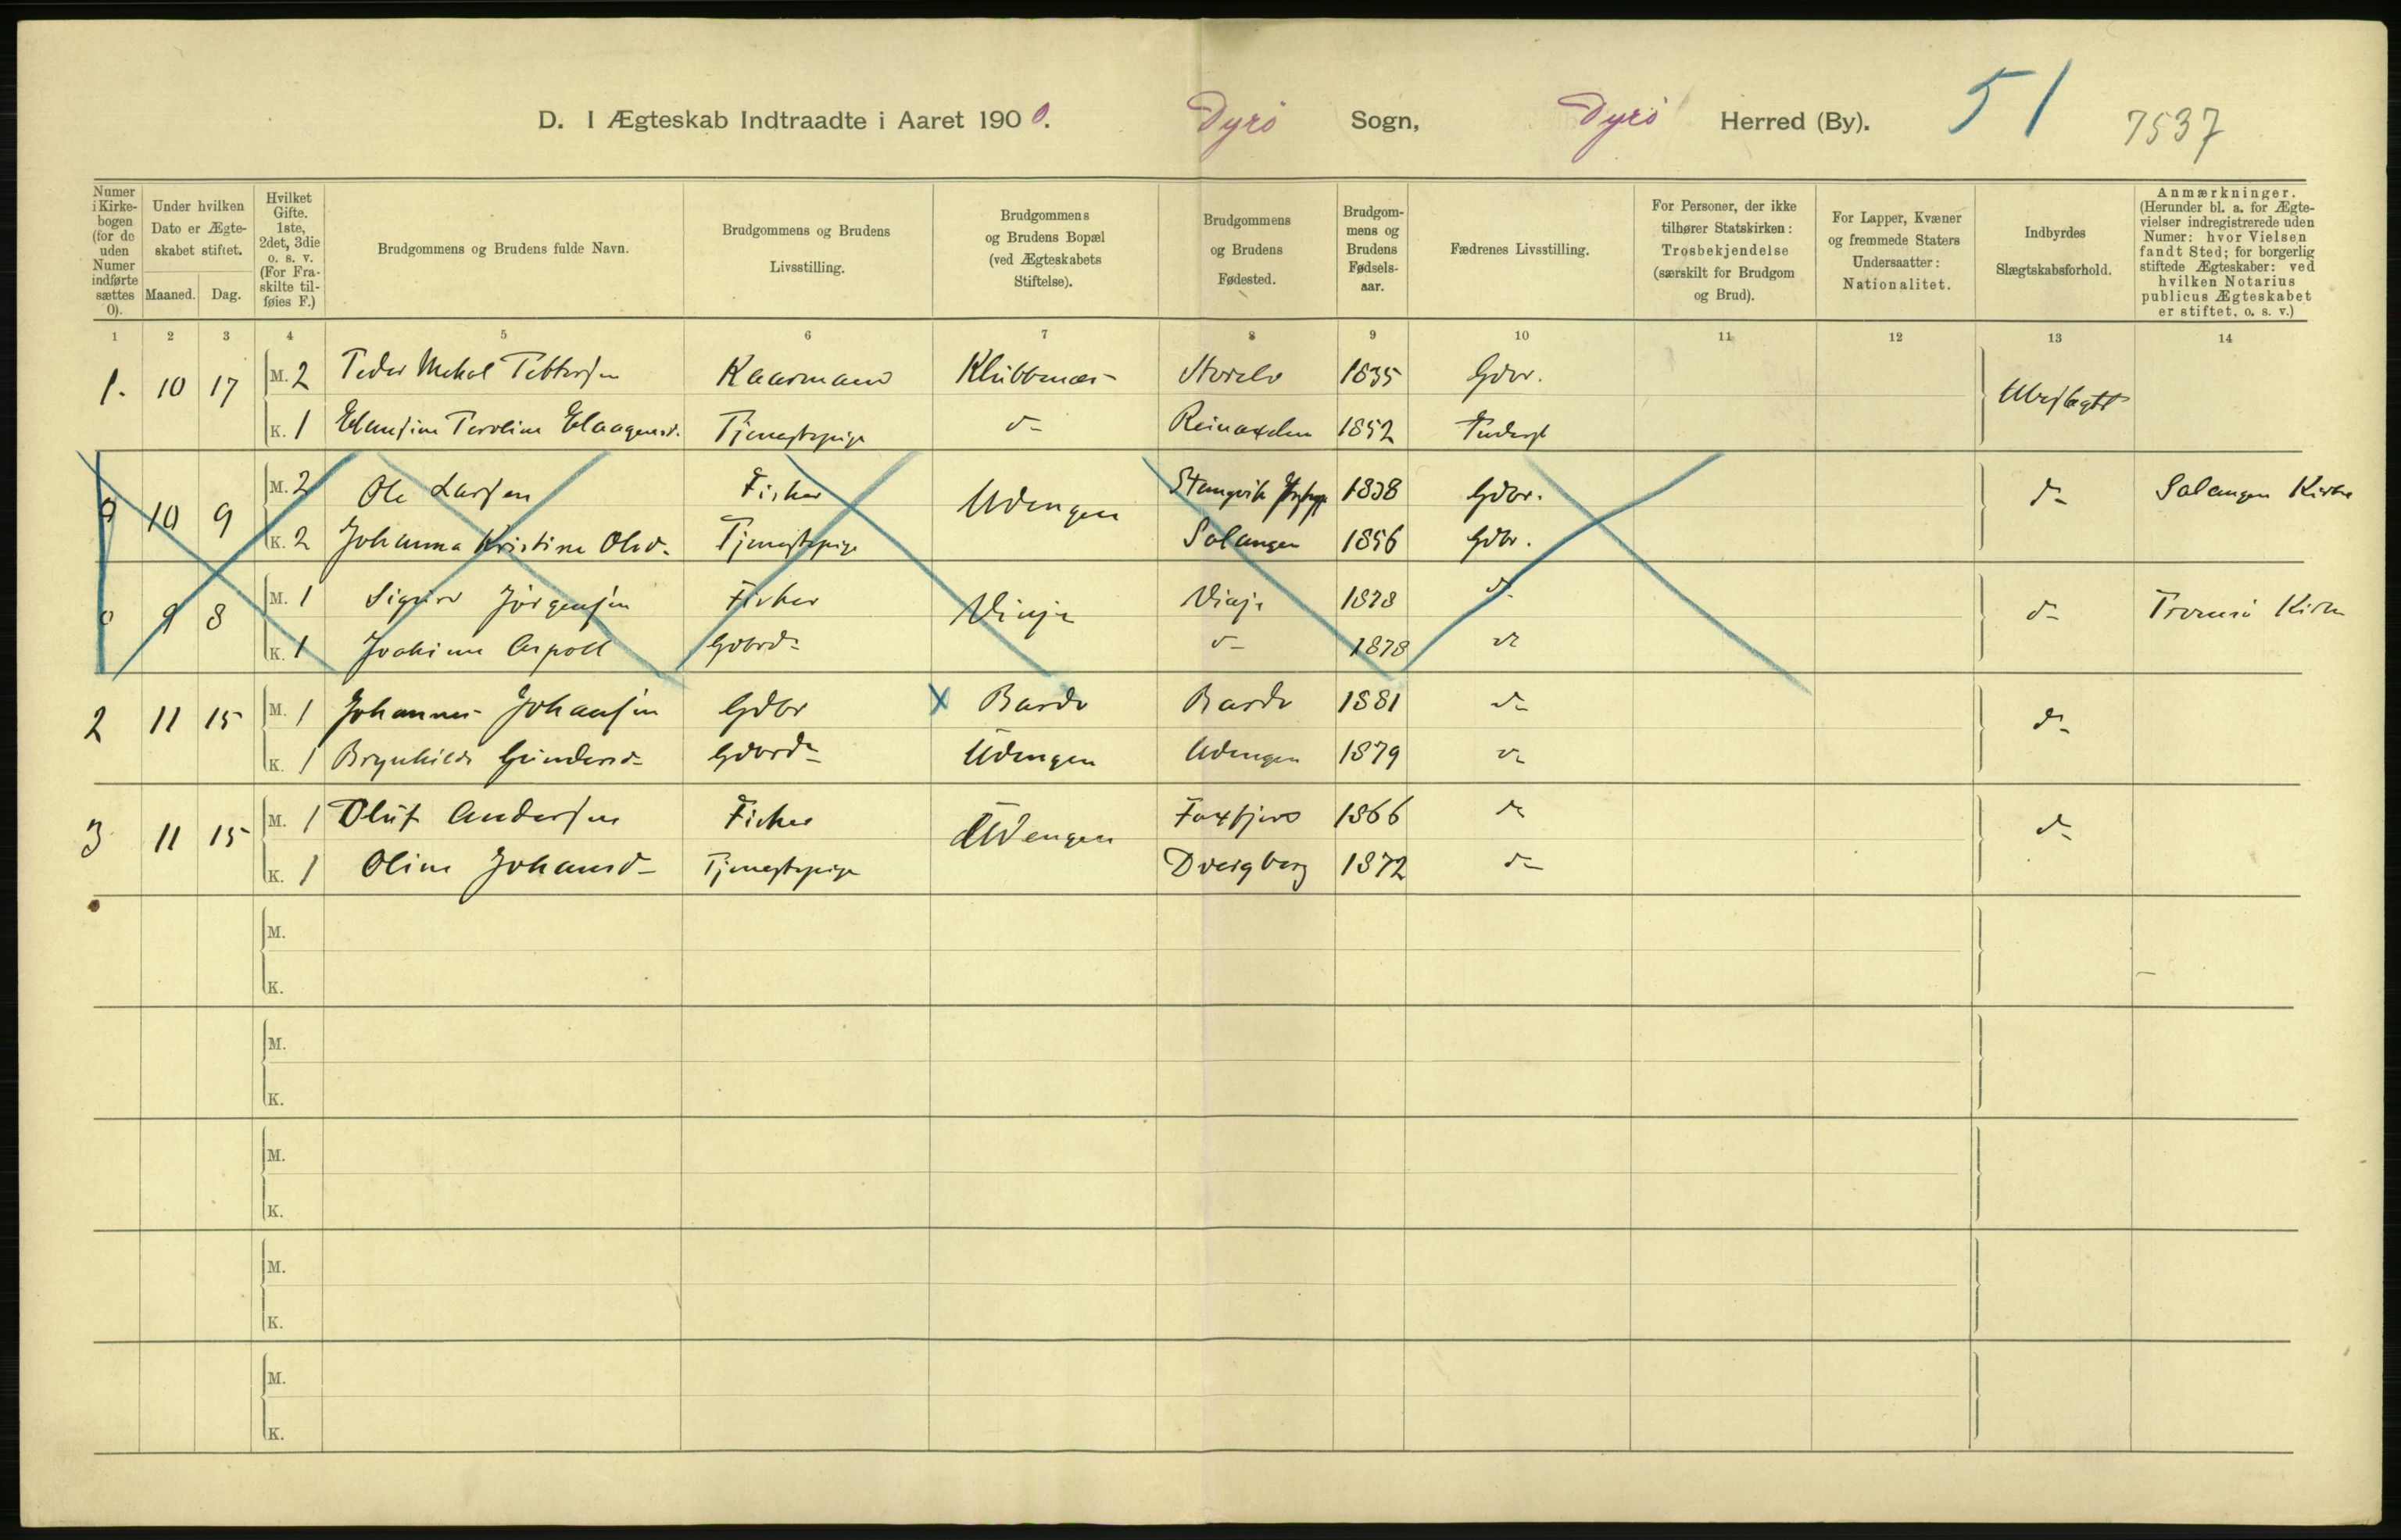 D. I Ægteskab Indtraadte i Aaret 1900. Dyrö Sogn, Dyrö Herred (By). 51 7537
Numer i Kirkebogen (for de uden Numer indførte sættes 0).
Under hvilken Dato er Ægteskabet stiftet.
Maaned. Dag.
Hvilket Gifte. 1ste, 2det, 3die o. s. v. (For Fraskilte tilføies F.)
Brudgommens og Brudens fulde Navn.
Brudgommens og Brudens Livsstilling.
Brudgommens og Brudens Bopæl (ved Ægteskabets Stiftelse).
Brudgommens og Brudens Fødested.
Brudgommens og Brudens Fødselsaar.
Fædrenes Livsstilling.
For Personer, der ikke tilhører Statskirken: Trosbekjendelse (særskilt for Brudgom og Brud).
For Lapper, Kvæner og fremmede Staters Undersaatter: Nationalitet.
Indbyrdes Slægtskabsforhold.
Anmærkninger. (Herunder bl. a. for Ægtevielser indregistrerede uden Numer: hvor Vielsen fandt Sted; for borgerlig stiftede Ægteskaber: ved hvilken Notarius publicus Ægteskabet er stiftet, o. s. v.)
1 2 3 4 5 6 7 8 9 10 11 12 13 14
1. 10 17 M. 2 Peder Mekal Pettersen Kaarmand Klubbenæs 1835 Gdbr. Ubeslægtet
K. 1 Tjenestepige d- 1852
0 10 9 M. 2 Ole Larsen Fisker Udengen Stangvik 1838 Gdbr. d- Salangen Kirke
K. 2 Johanna Kristine Olsd. Tjenestepige Salangen 1856 Gdbr.
0 9 8 M. 1 Sigurd Jörgensen Fisker Vinje Vinje 1878 d- d- Tromsö Kirke
K. 1 Joakime Gdbrd- d- 1878 d-
2 11 15 M. 1 Johannes Johansen Gdbr x Bardo Bardo 1881 d- d-
K. 1 Brynhilde Gundersd- Gdbrd- Udengen Udengen 1879 d-
3 11 15 M. 1 Oluf Andersen Fisker Udengen Faxfjord 1866 d- d-
K. 1 Oline Johansd- Tjenestepige Dvergberg 1872 d-
M.
K.
M.
K.
M.
K.
M.
K.
M.
K.